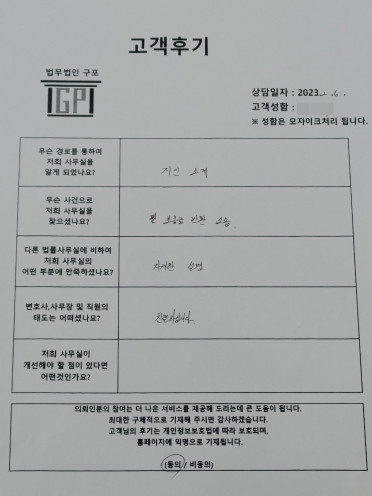 고객후기
법무법인 구포
GP
상담일자 : 2023. 2. 6.
고객성함 :
※ 성함은 모자이크처리 됩니다.
무슨 경로를 통하여
저희 사무실을
알게 되었나요?
지인 소개
무슨 사건으로
저희 사무실을
찾으셨나요?
보증금 반환 소송
다른 법률사무실에 비하여
저희 사무실의
어떤 부분에 만족하셨나요?
자세한 설명
변호사,사무장 및 직원의
태도는 어떠셨나요?
친절하십니다.
저희 사무실이
개선해야 할 점이 있다면
어떤것인가요?
의뢰인분의 참여는 더 나은 서비스를 제공해 드리는데 큰 도움이 됩니다.
최대한 구체적으로 기재해 주시면 감사하겠습니다.
고객님의 후기는 개인정보보호법에 따라 보호되며,
홈페이지에 익명으로 기재됩니다.
(동의 / 비동의)